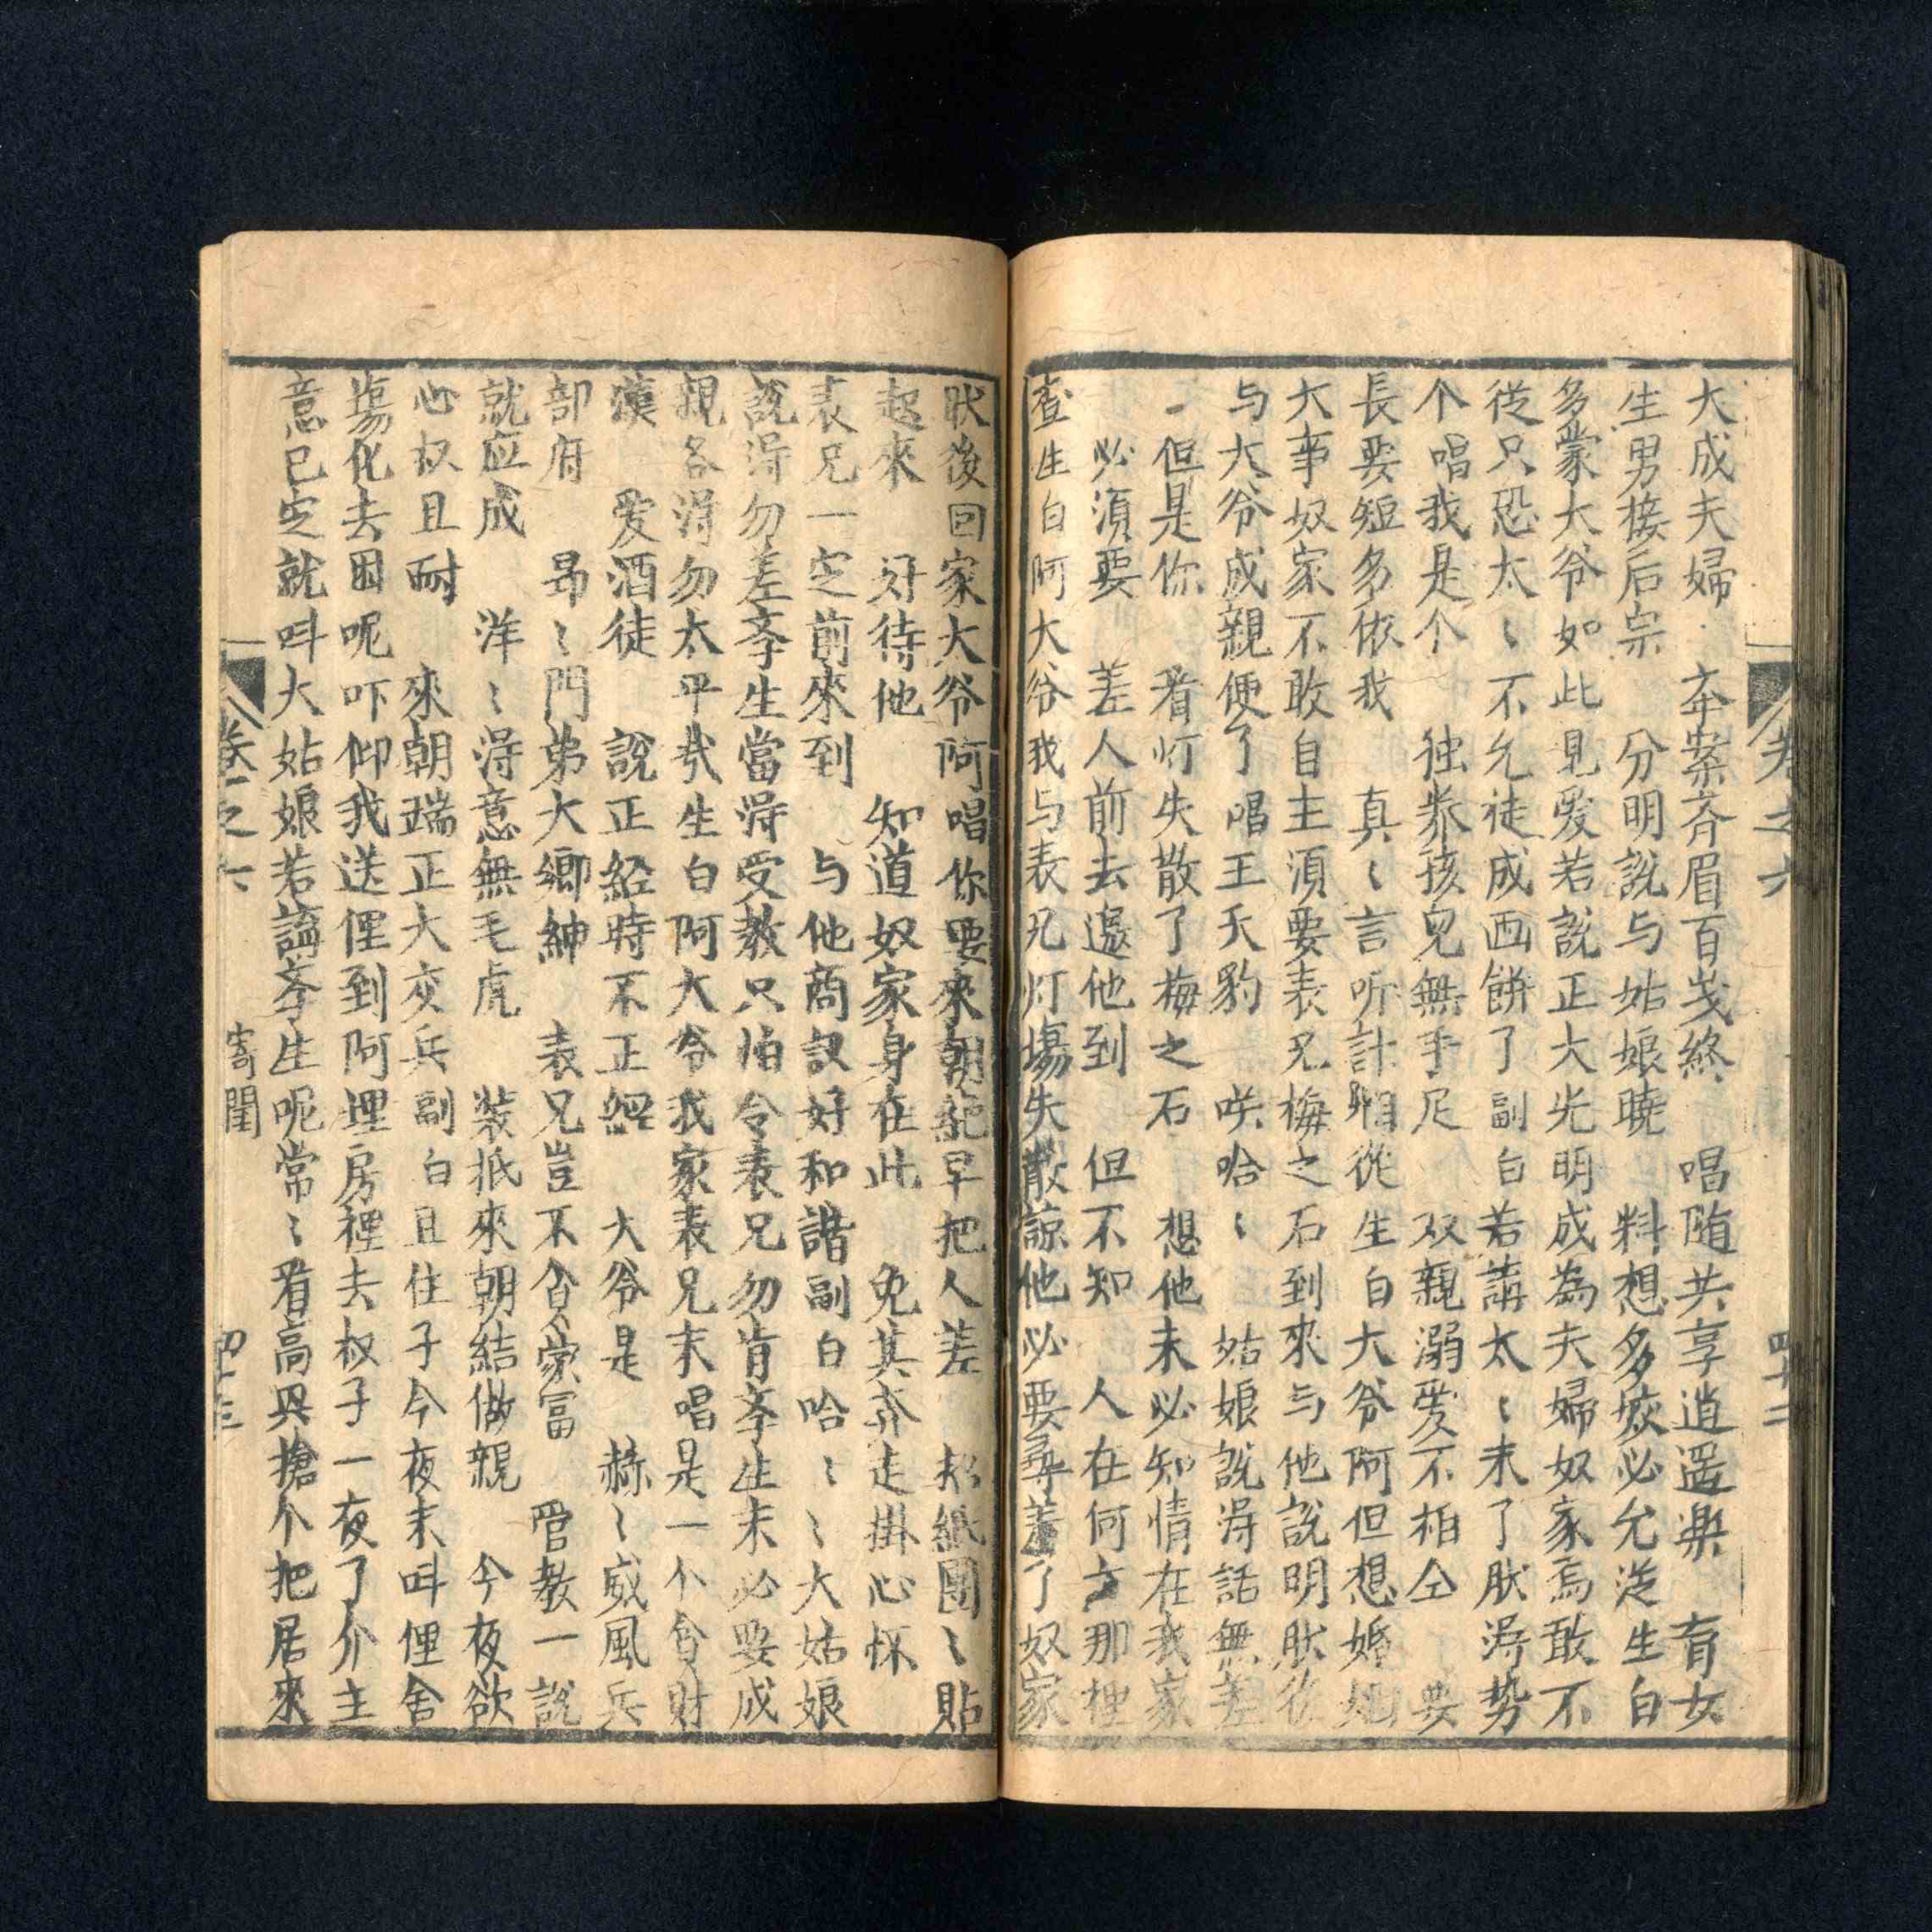 大成夫婦 卒案斉眉百岁終 唱随共享逍遥樂 育女
生男接后宗 分明說与姑娘曉 料想多姣必允從生白
多蒙大爷如此見爱若說正大光明成為夫婦奴家焉敢不
從只恐太〻不允徒成画餅了副白若講太〻末了肰淂势
个唱我是个 独养孩兒無手足 双親溺爱不相仝 要
長要短多依我 真〻言听計相從生白大爷阿但想婚姻
大事奴家不敢自主須要表兄梅之石到來与他說明肰後
与大爷成親便了唱王天豹 咲哈〻 姑娘說淂話無差
一但是你 看灯失散了梅之石 想他未必知情在我家
必須要 差人前去邀他到 但不知 人在何方那裡
查生白阿大爷我与表兄灯塲失散諒他必要尋着了奴家
肰後回家大爷阿唱你要來朝絶早把人差 招紙團〻貼
起來 好待他 知道奴家身在此 免其奔走掛心怀
表兄一定前來到 与他商议好和諧副白哈〻〻大姑娘
說淂勿差李生當淂受教只怕令表兄勿肯李生末必要成
親各淂勿太平哉生白阿大爷我家表兄末唱是一个貪財
漢 爱酒徒 說正經時不正經 大爷是 赫〻威風兵
部府 昂〻門弟大鄉紳 表兄豈不貪豪富 管教一說
就应成 洋〻淂意無毛虎 裝抵來朝結做親 今夜欲
心权且耐 來朝端正大交兵副白且住子今夜末呌俚舍
塲化去困呢吓仰我送俚到阿埋房裡去权子一夜了介主
意已定就呌大姑娘若論李生呢常〻看高興搶个把居來
卷之六
四十二
卷之六
寄閨
四十三